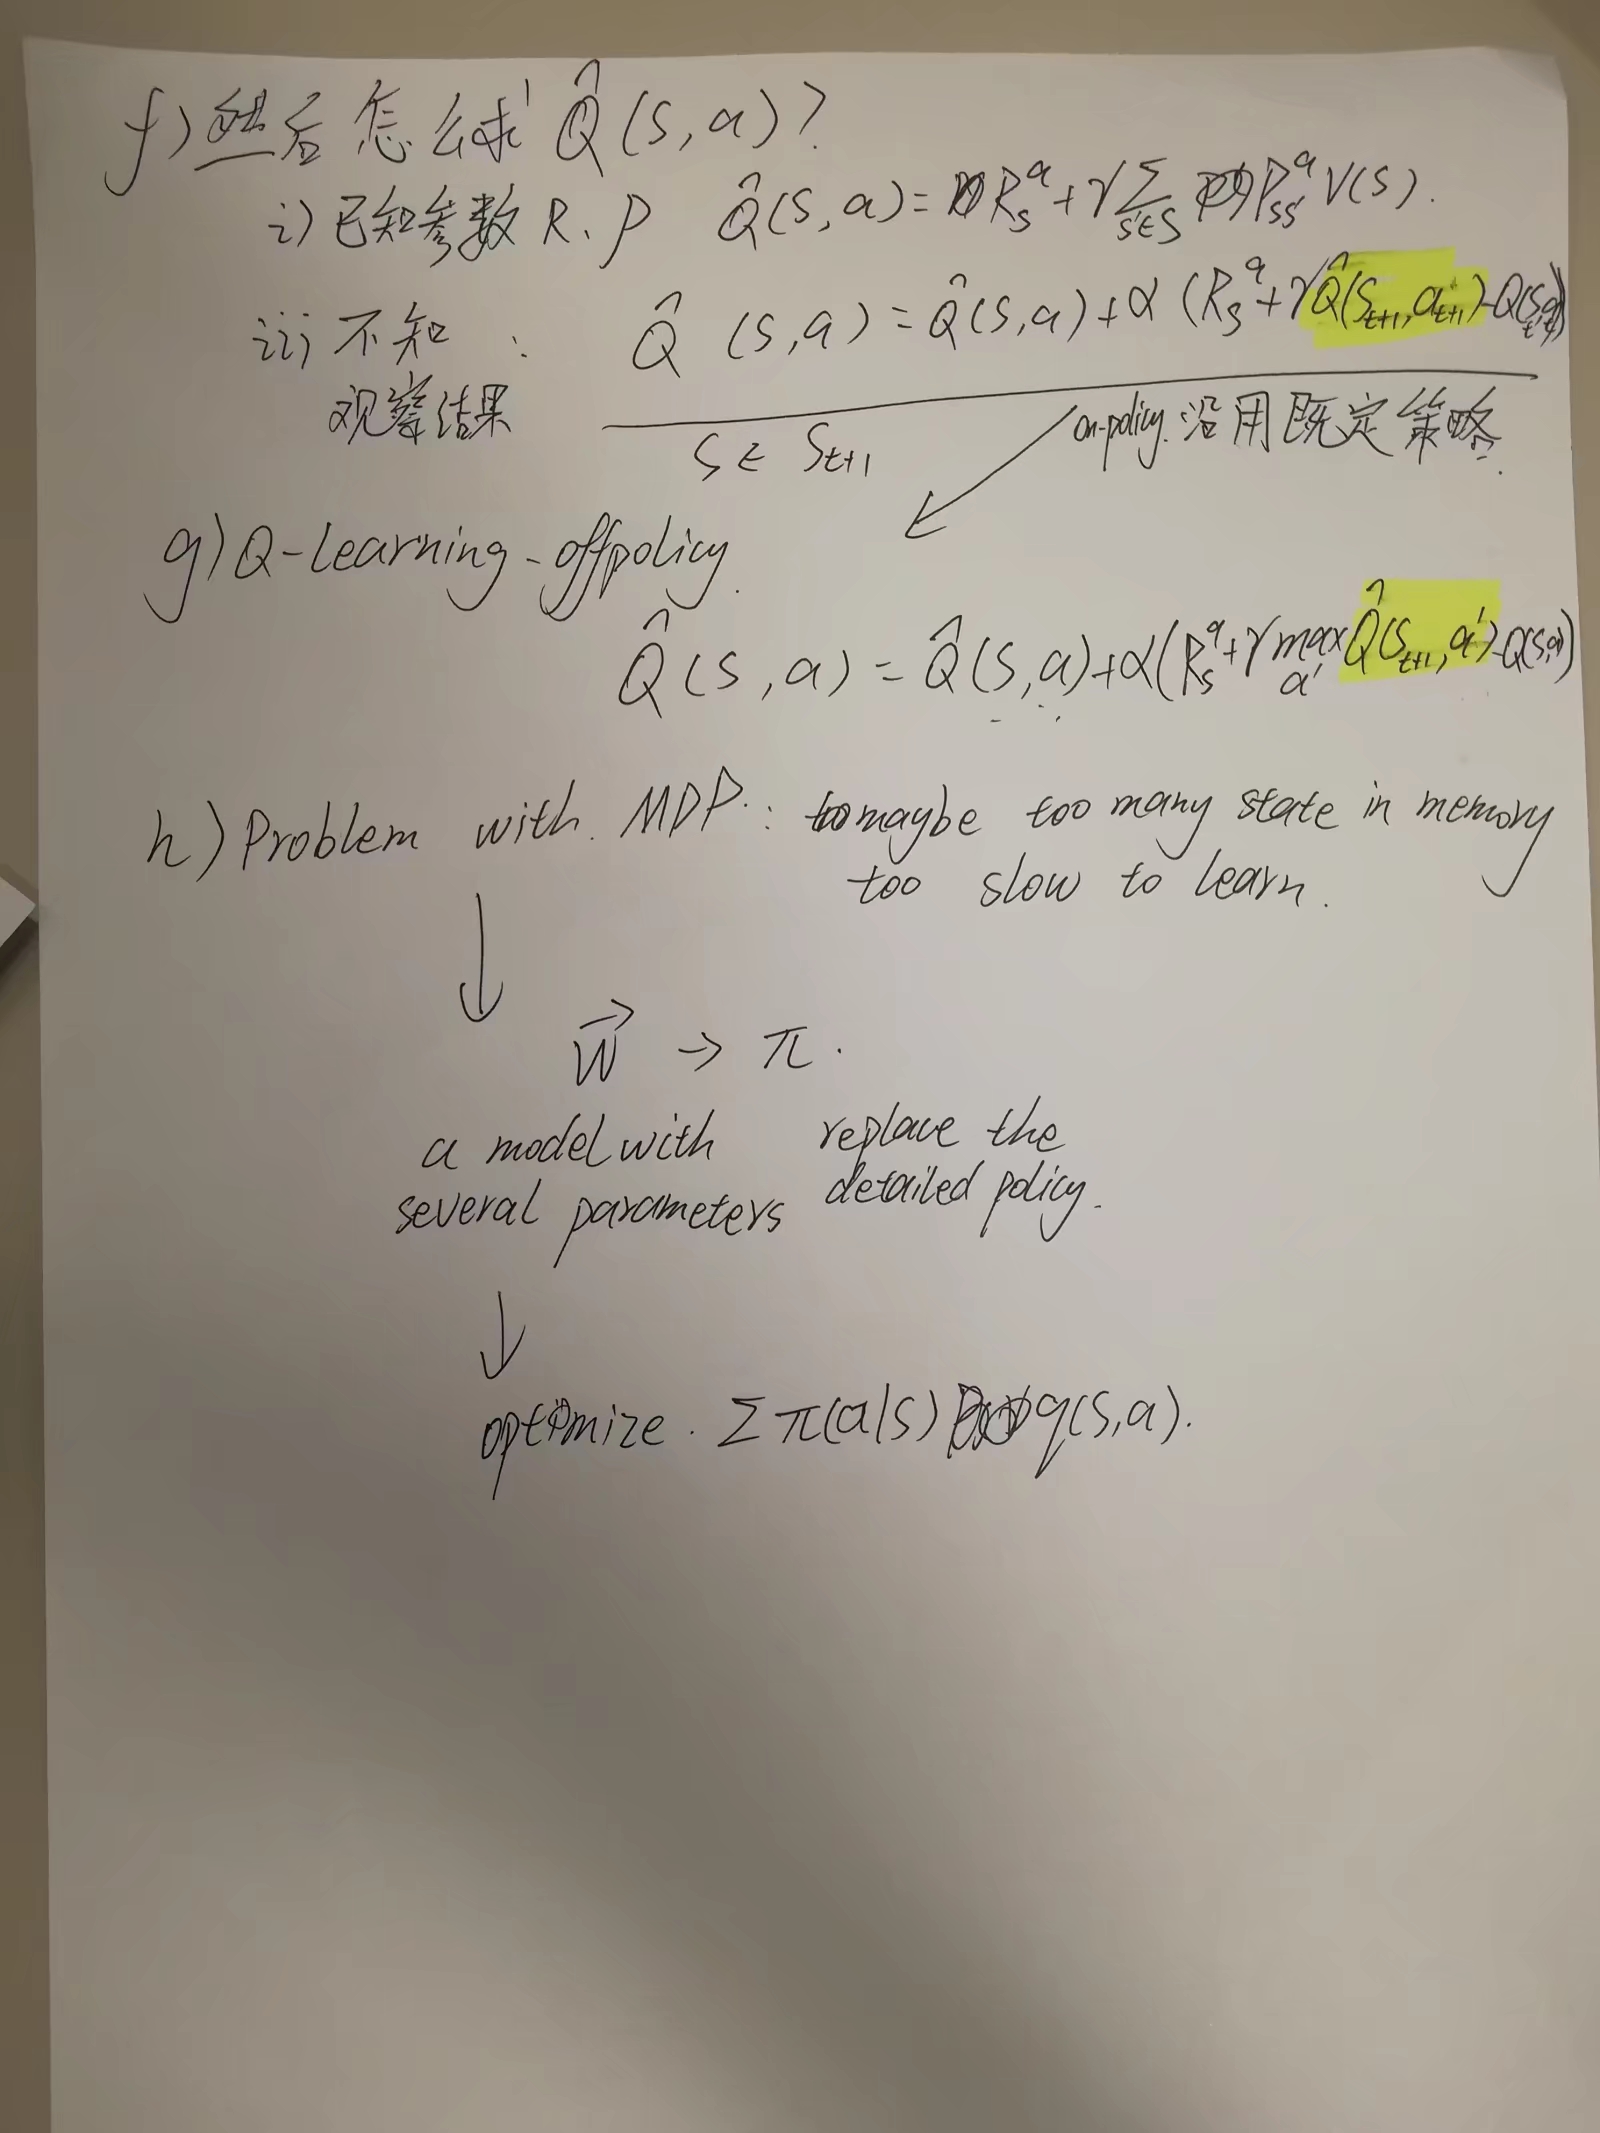 f) 然后怎么求 Q̂(s,a)?
i) 已知参数 R、P Q̂(s,a) = R_s^a + γ Σ_{s'∈S} P_{ss'}^a V(s).
ii) 不知 : Q̂(s,a) = Q̂(s,a) + α (R_s^a + γ Q̂(s_{t+1}, a_{t+1}) - Q(s_t,a_t))
观察结果
S ∈ S_{t+1}
on-policy. 沿用既定策略.
g) Q-learning - offpolicy.
Q̂(s,a) = Q̂(s,a) + α(R_s^a + γ max_{a'} Q̂(s_{t+1}, a') - Q(s,a))
h) Problem with MDP: maybe too many state in memory
too slow to learn.
↓
W⃗ → π.
a model with replace the
several parameters detailed policy.
↓
optimize. Σ π(a|s) q(s,a).